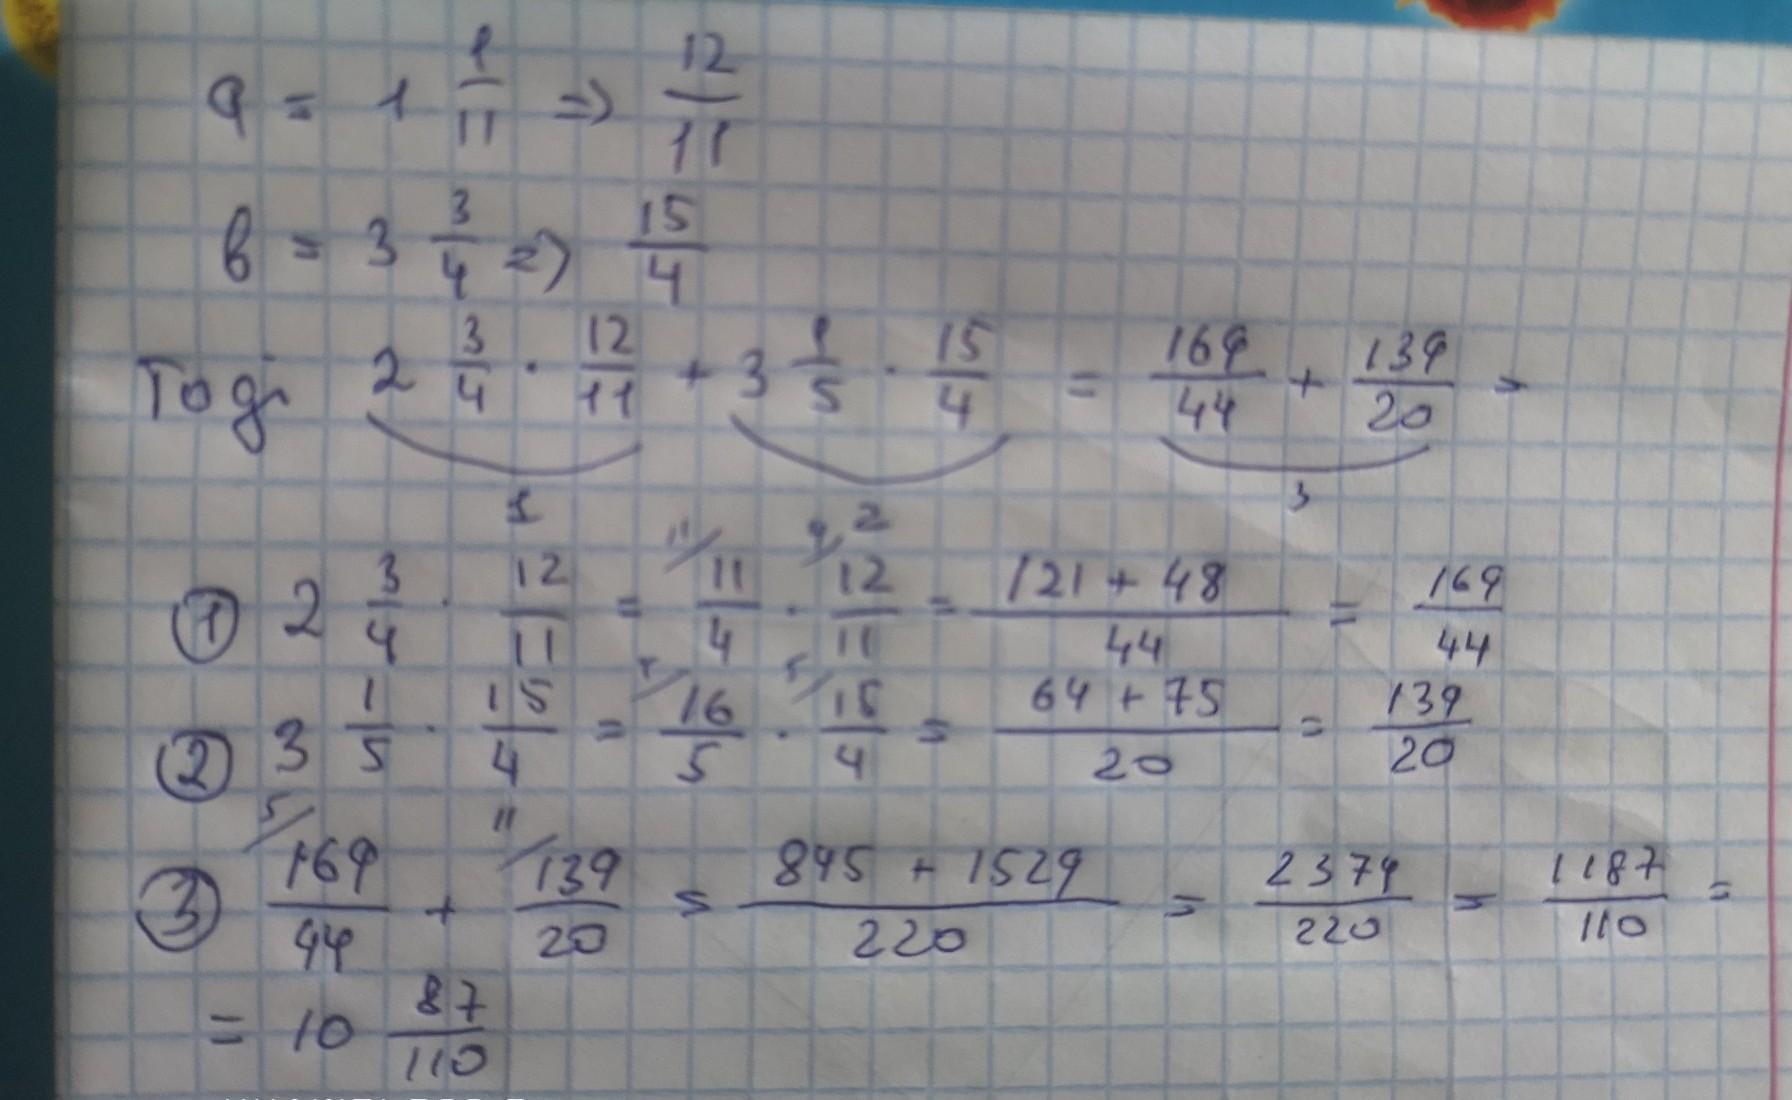 a = 1 1/11 => 12/11
b = 3 3/4 => 15/4
Тоді 2 3/4 · 12/11 + 3 1/5 · 15/4 = 169/44 + 139/20 =
1 2 3
① 2 3/4 · 12/11 = 11/ 11/4 · 4/ 12/11 = (121 + 48)/44 = 169/44
② 3 1/5 · 15/4 = 16/5 · 5/ 15/4 = (64 + 75)/20 = 139/20
③ 5/ 169/44 + 11/ 139/20 = (845 + 1529)/220 = 2374/220 = 1187/110 =
= 10 87/110